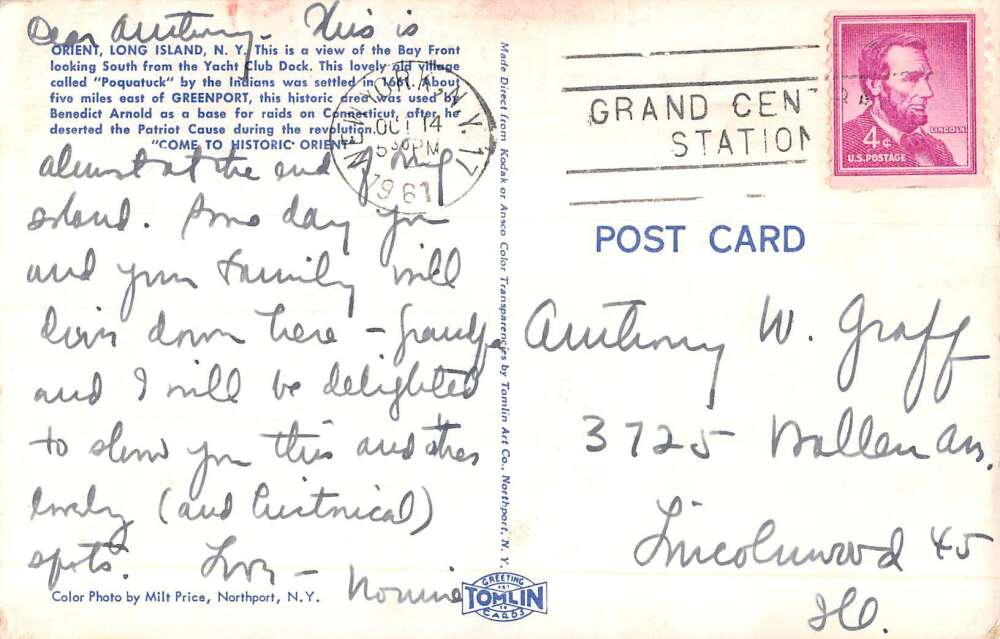 Dear Anthony - This is
ORIENT, LONG ISLAND, N. Y. This is a view of the Bay Front
looking South from the Yacht Club Dock. This lovely old village
called "Poquatuck" by the Indians was settled in 1661. About
five miles east of GREENPORT, this historic area was used by
Benedict Arnold as a base for raids on Connecticut, after he
deserted the Patriot Cause during the revolution.
"COME TO HISTORIC ORIENT"
almost at the end of long
island. Some day you
and your family will
down here - Grandpa
and I will be delighted
to show you this and other
lovely (and historical)
spots. Love -
Color Photo by Milt Price, Northport, N.Y.
Made Direct from Kodak or Ansco Color Transparencies by Tomlin Art Co., Northport, N. Y.
GREETING
TOMLIN
CARDS
NEW YORK, N.Y. 17
OCT 14
5 30 PM
1961
GRAND CENTR
STATION
4¢
LINCOLN
U.S. POSTAGE
POST CARD
Anthony W. Graff
3725
Lincolnwood 45
Ill.